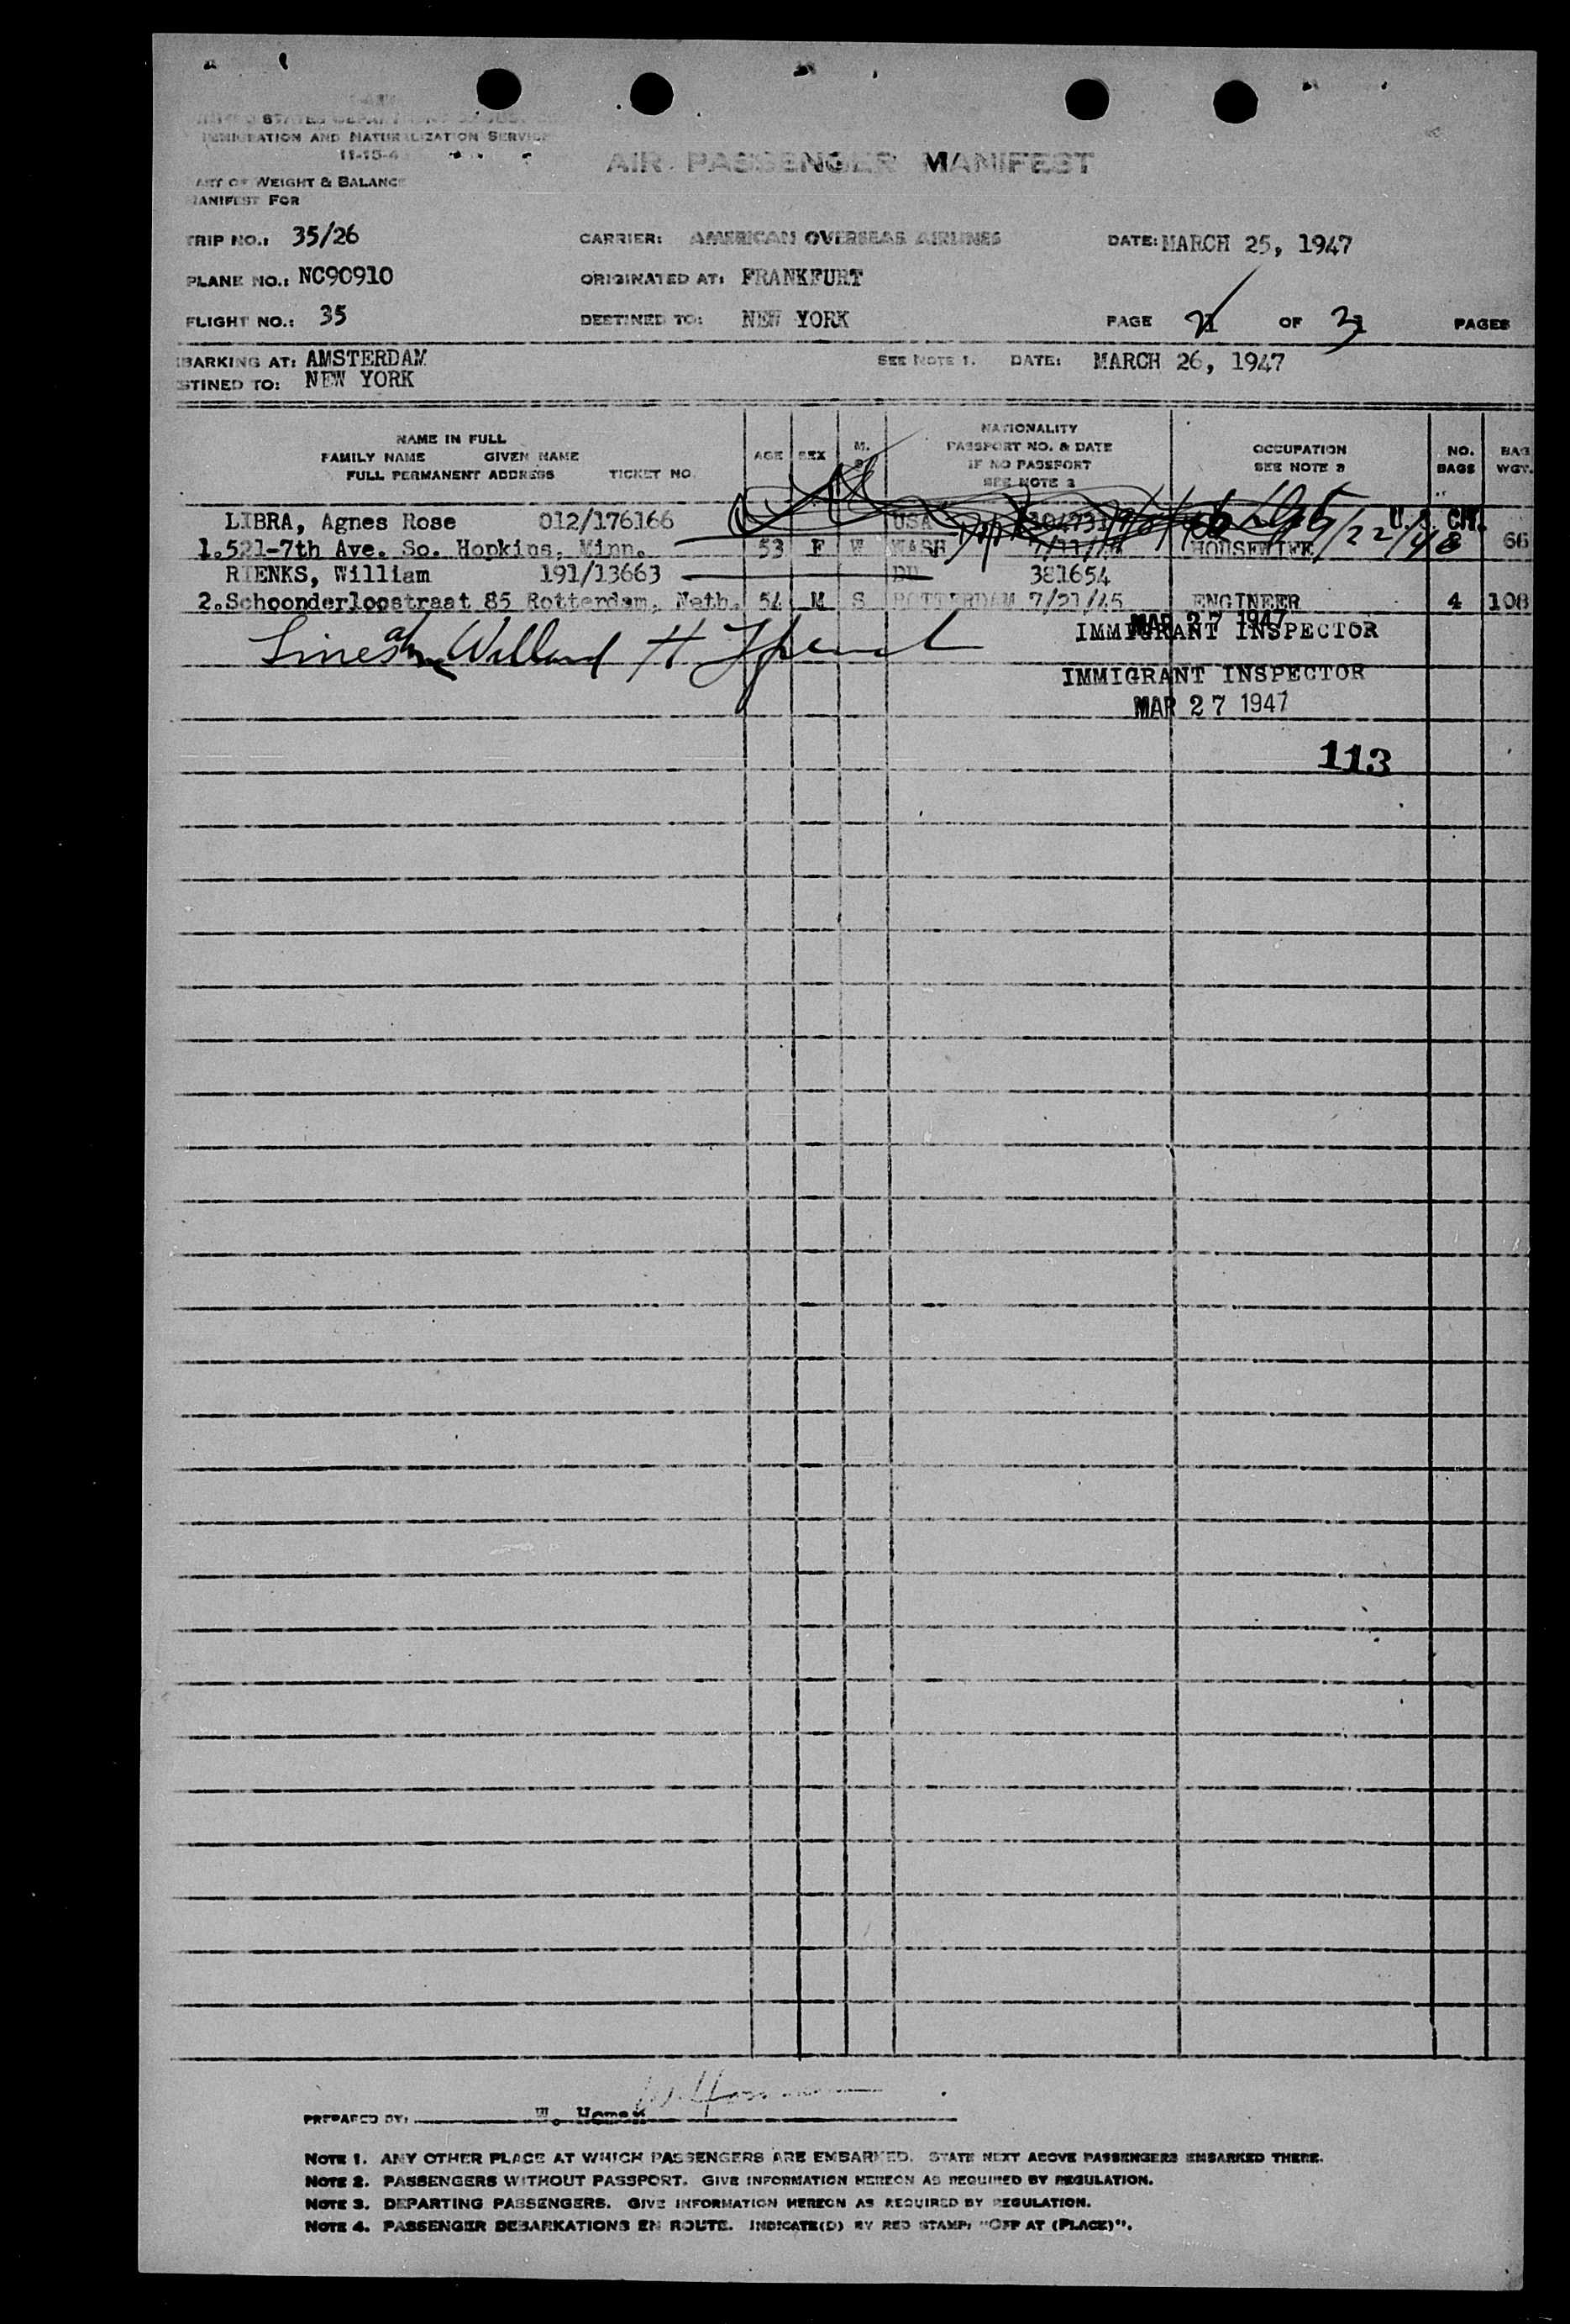 IMMIGRATION AND NATURALIZATION SERVICE
AIR PASSENGER MANIFEST
WEIGHT & BALANCE
MANIFEST FOR
TRIP NO.: 35/26 CARRIER: AMERICAN OVERSEAS AIRLINES DATE: MARCH 25, 1947
PLANE NO.: NC90910 ORIGINATED AT: FRANKFURT
FLIGHT NO.: 35 DESTINED TO: NEW YORK PAGE OF PAGES
BARKING AT: AMSTERDAM SEE NOTE 1. DATE: MARCH 26, 1947
STINED TO: NEW YORK
NAME IN FULL
FAMILY NAME GIVEN NAME
FULL PERMANENT ADDRESS TICKET NO.
AGE SEX M.
NATIONALITY
PASSPORT NO. & DATE
IF NO PASSPORT
SEE NOTE 2
OCCUPATION
SEE NOTE 3
NO.
BAGS
BAG
WGT.
LIBRA, Agnes Rose 012/176166 USA U.S. CIT.
1.521-7th Ave. So. Hopkins, Minn. 53 F W WASH HOUSEWIFE 66
RIENKS, William 191/13663 DU 381654
2.Schoonderloostraat 85 Rotterdam, Neth. 54 M S ROTTERDAM 7/21/45 ENGINEER 4 108
MAR 27 1947
IMMIGRANT INSPECTOR
IMMIGRANT INSPECTOR
MAR 27 1947
113
PREPARED BY: W. Homan
NOTE 1. ANY OTHER PLACE AT WHICH PASSENGERS ARE EMBARKED. STATE NEXT ABOVE PASSENGERS EMBARKED THERE.
NOTE 2. PASSENGERS WITHOUT PASSPORT. GIVE INFORMATION HEREON AS REQUIRED BY REGULATION.
NOTE 3. DEPARTING PASSENGERS. GIVE INFORMATION HEREON AS REQUIRED BY REGULATION.
NOTE 4. PASSENGER DEBARKATIONS EN ROUTE. INDICATE(D) BY RED STAMP: "OFF AT (PLACE)".